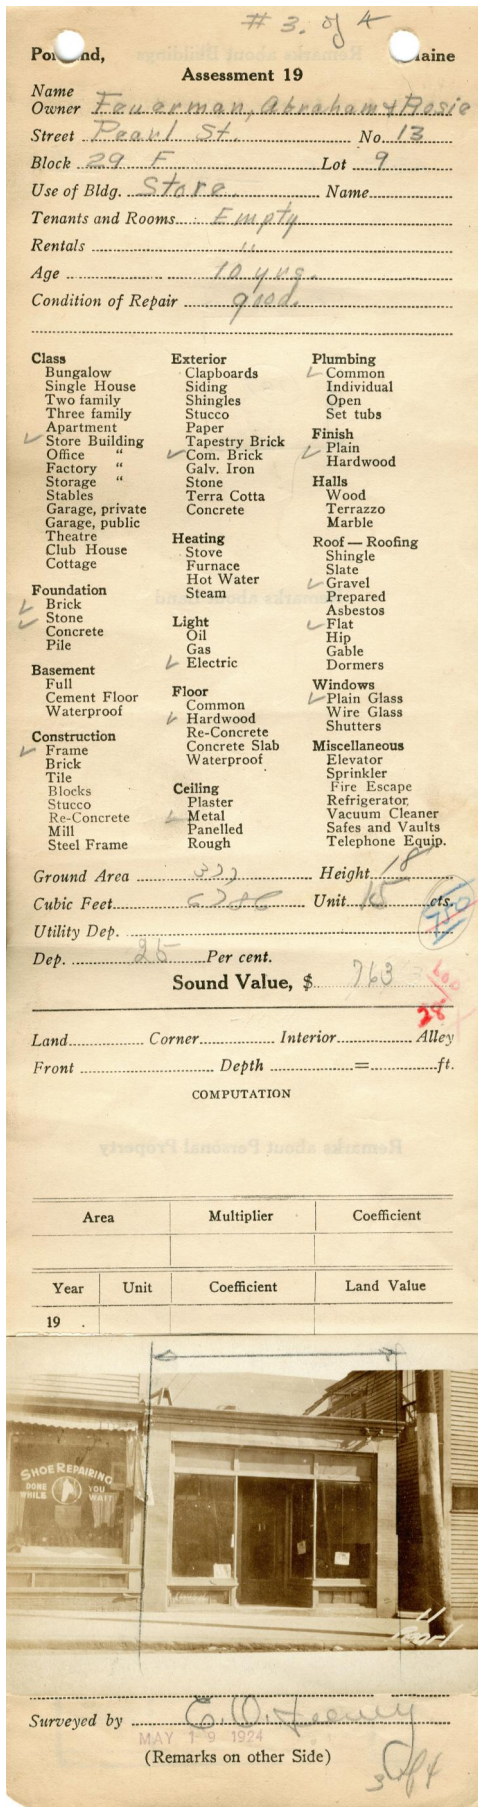 # 3. of 4
Portland, Maine
Assessment 19
Name
Owner Feuerman, Abraham & Rosie
Street Pearl St. No. 13
Block 29 F Lot 9
Use of Bldg. Store Name
Tenants and Rooms Empty
Rentals "
Age 10 yrs.
Condition of Repair good.
Class
Bungalow
Single House
Two family
Three family
Apartment
✓ Store Building
Office "
Factory "
Storage "
Stables
Garage, private
Garage, public
Theatre
Club House
Cottage
Foundation
✓ Brick
✓ Stone
Concrete
Pile
Basement
Full
Cement Floor
Waterproof
Construction
✓ Frame
Brick
Tile
Blocks
Stucco
Re-Concrete
Mill
Steel Frame
Exterior
Clapboards
Siding
Shingles
Stucco
Paper
Tapestry Brick
✓ Com. Brick
Galv. Iron
Stone
Terra Cotta
Concrete
Heating
Stove
Furnace
Hot Water
Steam
Light
Oil
Gas
✓ Electric
Floor
Common
✓ Hardwood
Re-Concrete
Concrete Slab
Waterproof
Ceiling
Plaster
✓ Metal
Panelled
Rough
Plumbing
✓ Common
Individual
Open
Set tubs
Finish
✓ Plain
Hardwood
Halls
Wood
Terrazzo
Marble
Roof — Roofing
Shingle
Slate
✓ Gravel
Prepared
Asbestos
✓ Flat
Hip
Gable
Dormers
Windows
✓ Plain Glass
Wire Glass
Shutters
Miscellaneous
Elevator
Sprinkler
Fire Escape
Refrigerator
Vacuum Cleaner
Safes and Vaults
Telephone Equip.
Ground Area 377 Height 18
Cubic Feet 6786 Unit 15 cts.
Utility Dep.
Dep. 25 Per cent.
Sound Value, $ 763
600
28
Land Corner Interior Alley
Front Depth = ft.
COMPUTATION
Area Multiplier Coefficient
Year Unit Coefficient Land Value
19 .
SHOE REPAIRING
DONE WHILE YOU WAIT
11
Pearl
Surveyed by
MAY 19 1924
(Remarks on other Side)
3 of 4